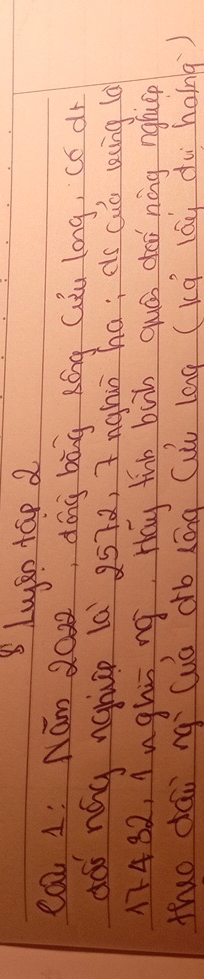 Luyện tập 2
Câu 1: Năm 2022, đồng bằng sông Cửu Long, có dt
đất nông nghiệp là 2572,7 nghìn ha, ds của vùng là
17432,1 nghìn ng. Hãy tính bình quân đất nông nghiệp
theo đầu ng của đb sông Cửu Long (kq lấy đv ha/ng)